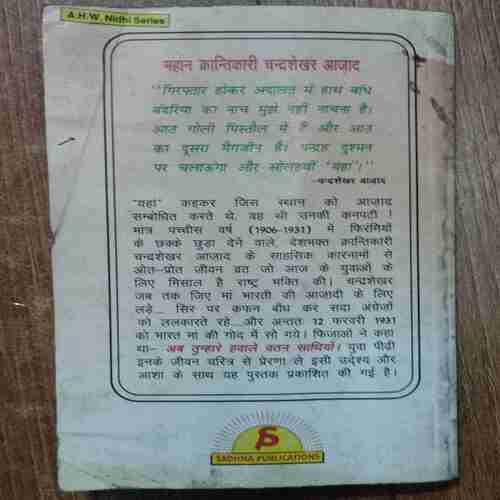 A.H.W. Nidhi Series
महान क्रान्तिकारी चन्द्रशेखर आज़ाद
"गिरफ्तार होकर अदालत में हाथ बांध
बंदरिया का नाच मुझे नहीं नाचना है।
आठ गोली पिस्तौल में हैं और आठ
का दूसरा मैगजीन है। पन्द्रह दुश्मन
पर चलाऊंगा और सोलहवीं "यहां"।"
–चन्द्रशेखर आजाद
"यहां" कहकर जिस स्थान को आजाद
सम्बोधित करते थे, वह थी उनकी कनपटी !
मात्र पच्चीस वर्ष (1906-1931) में फिरंगियों
के छक्के छुड़ा देने वाले, देशभक्त क्रान्तिकारी
चन्द्रशेखर आजाद के साहसिक कारनामों से
ओत-प्रोत जीवन व्रत जो आज के युवाओं के
लिए मिसाल है राष्ट्र भक्ति की। चन्द्रशेखर
जब तक जिए मां भारती की आजादी के लिए
लड़े... सिर पर कफन बाँध कर सदा अंग्रेजों
को ललकारते रहे...और अन्ततः 12 फरवरी 1931
को भारत मां की गोद में सो गये। फिजाओं ने कहा
था– अब तुम्हारे हवाले वतन साथियों। युवा पीढ़ी
इनके जीवन चरित्र से प्रेरणा ले इसी उद्देश्य और
आशा के साथ यह पुस्तक प्रकाशित की गई है।
SADHNA PUBLICATIONS